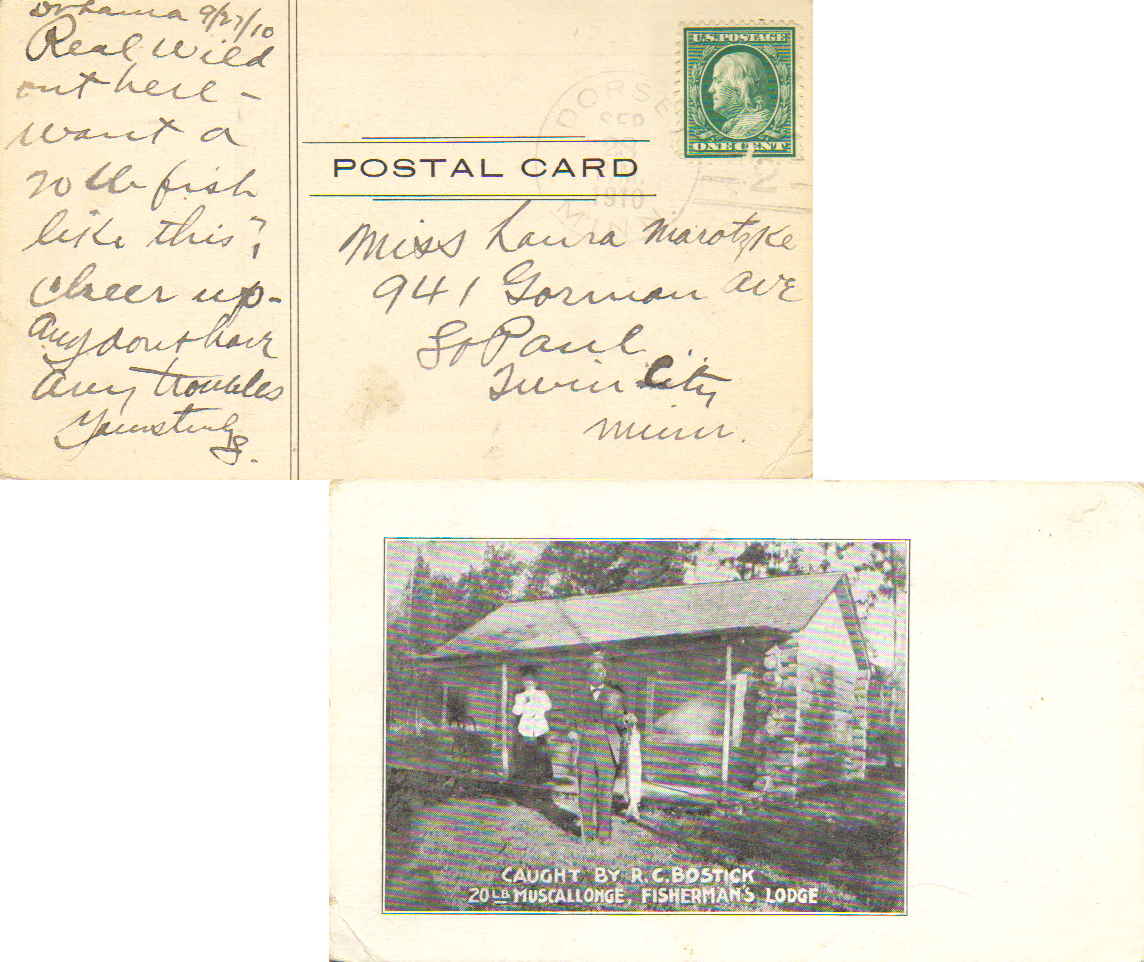 9/27/10
Real Wild
out here –
want a
20 lb fish
like this",
cheer up –
don't have
any troubles
U.S. POSTAGE
ONE CENT
DORSE
SEP
1910
MINN
2
POSTAL CARD
Miss Laura Marotzke
941 Gorman Ave
So Paul
Twin City
Minn.
CAUGHT BY R.C. BOSTICK
20 LB MUSCALLONGE, FISHERMAN'S LODGE